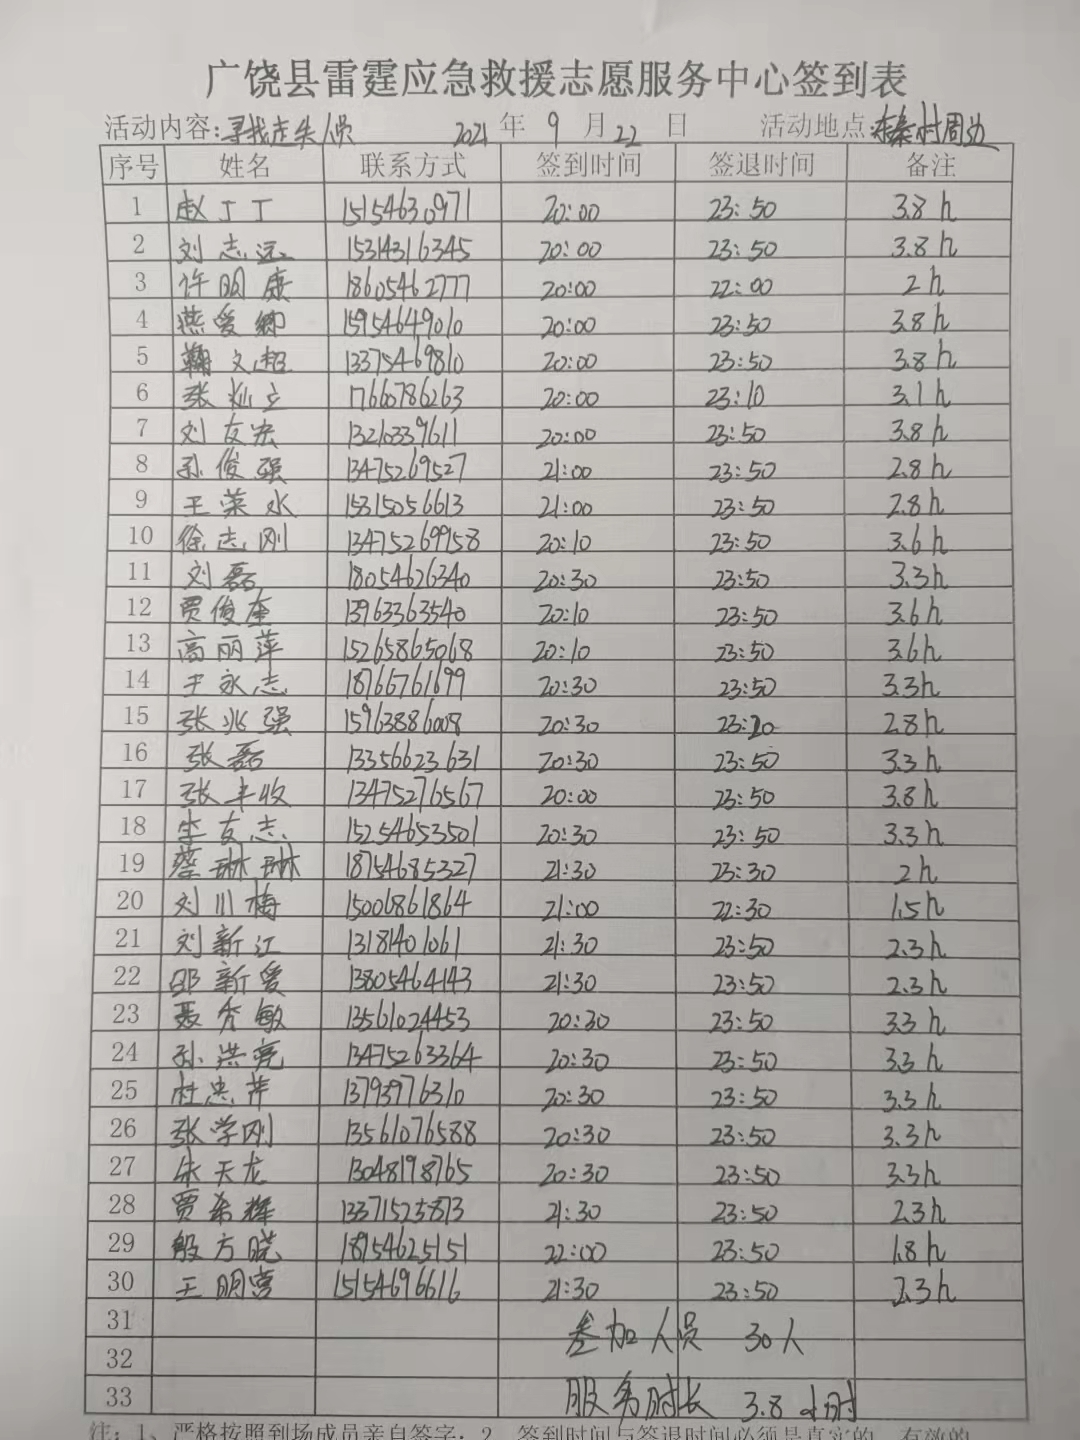 广饶县雷霆应急救援志愿服务中心签到表
活动内容:寻找走失人员 2021 年 9 月 22 日 活动地点:东秦村周边
序号 姓名 联系方式 签到时间 签退时间 备注
1 赵丁丁 15154630971 20:00 23:50 3.8h
2 刘志远 15314316345 20:00 23:50 3.8h
3 许明康 18605462777 20:00 22:00 2h
4 燕爱卿 15954649010 20:00 23:50 3.8h
5 鞠文超 13375469810 20:00 23:50 3.8h
6 张灿立 17660786263 20:00 23:10 3.1h
7 刘友宏 13210339611 20:00 23:50 3.8h
8 孙俊强 13475269527 21:00 23:50 2.8h
9 王荣水 15315056613 21:00 23:50 2.8h
10 徐志刚 13475269958 20:10 23:50 3.6h
11 刘磊 18054626340 20:30 23:50 3.3h
12 贾俊奎 13963363540 20:10 23:50 3.6h
13 高丽萍 15265865068 20:10 23:50 3.6h
14 王永志 18766761699 20:30 23:50 3.3h
15 张兆强 15963886008 20:30 23:20 2.8h
16 张磊 13356623631 20:30 23:50 3.3h
17 张丰收 13475276567 20:00 23:50 3.8h
18 李友志 15254653501 20:30 23:50 3.3h
19 蔡琳琳 18754685327 21:30 23:30 2h
20 刘川梅 15006861864 21:00 22:30 1.5h
21 刘新江 13181401061 21:30 23:50 2.3h
22 邵新爱 13805464143 21:30 23:50 2.3h
23 聂秀敏 13561024453 20:30 23:50 3.3h
24 孙洪亮 13475263364 20:30 23:50 3.3h
25 杜忠萍 13793976310 20:30 23:50 3.3h
26 张学刚 13561076588 20:30 23:50 3.3h
27 朱天龙 13048198765 20:30 23:50 3.3h
28 贾希辉 13371523873 21:30 23:50 2.3h
29 殷方晓 18954625151 22:00 23:50 1.8h
30 王明宫 15154696616 21:30 23:50 2.3h
31 参加人员 30人
32
33 服务时长 3.8小时
注：1、严格按照到场成员亲自签字；2、签到时间与签退时间必须是真实的、有效的